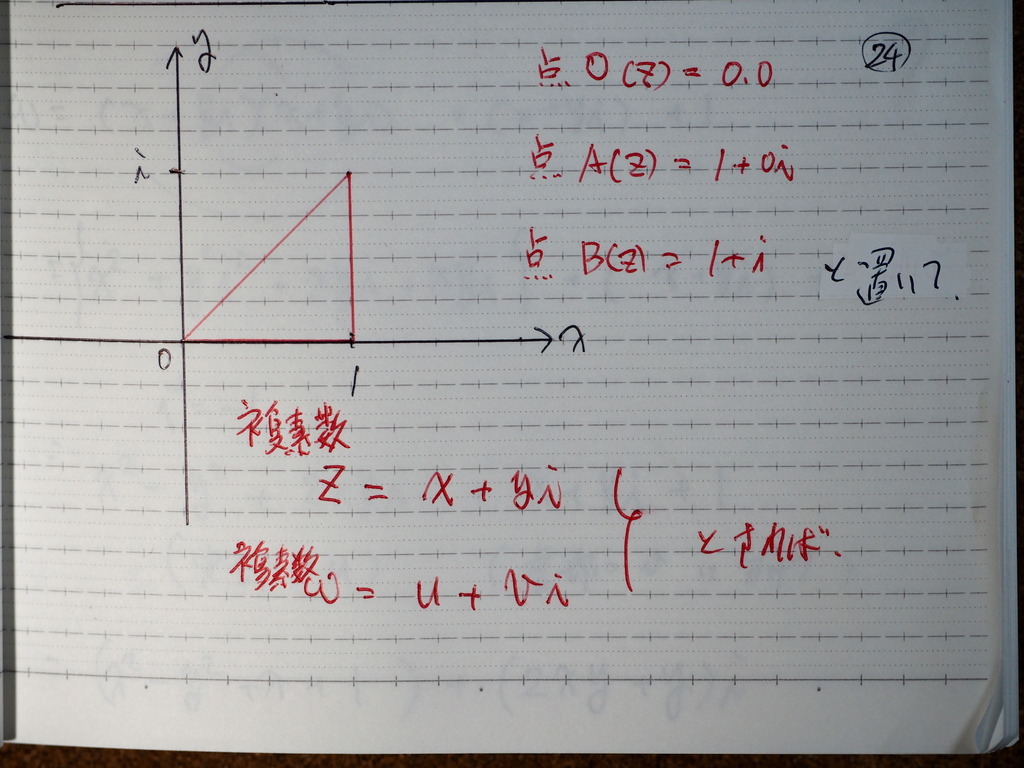 24
y
点 O(z) = 0.0
i
点 A(z) = 1+0i
点 B(z) = 1+i と置いて.
0
1
x
複素数
z = x + yi
とすれば.
複素数
ω = u + vi